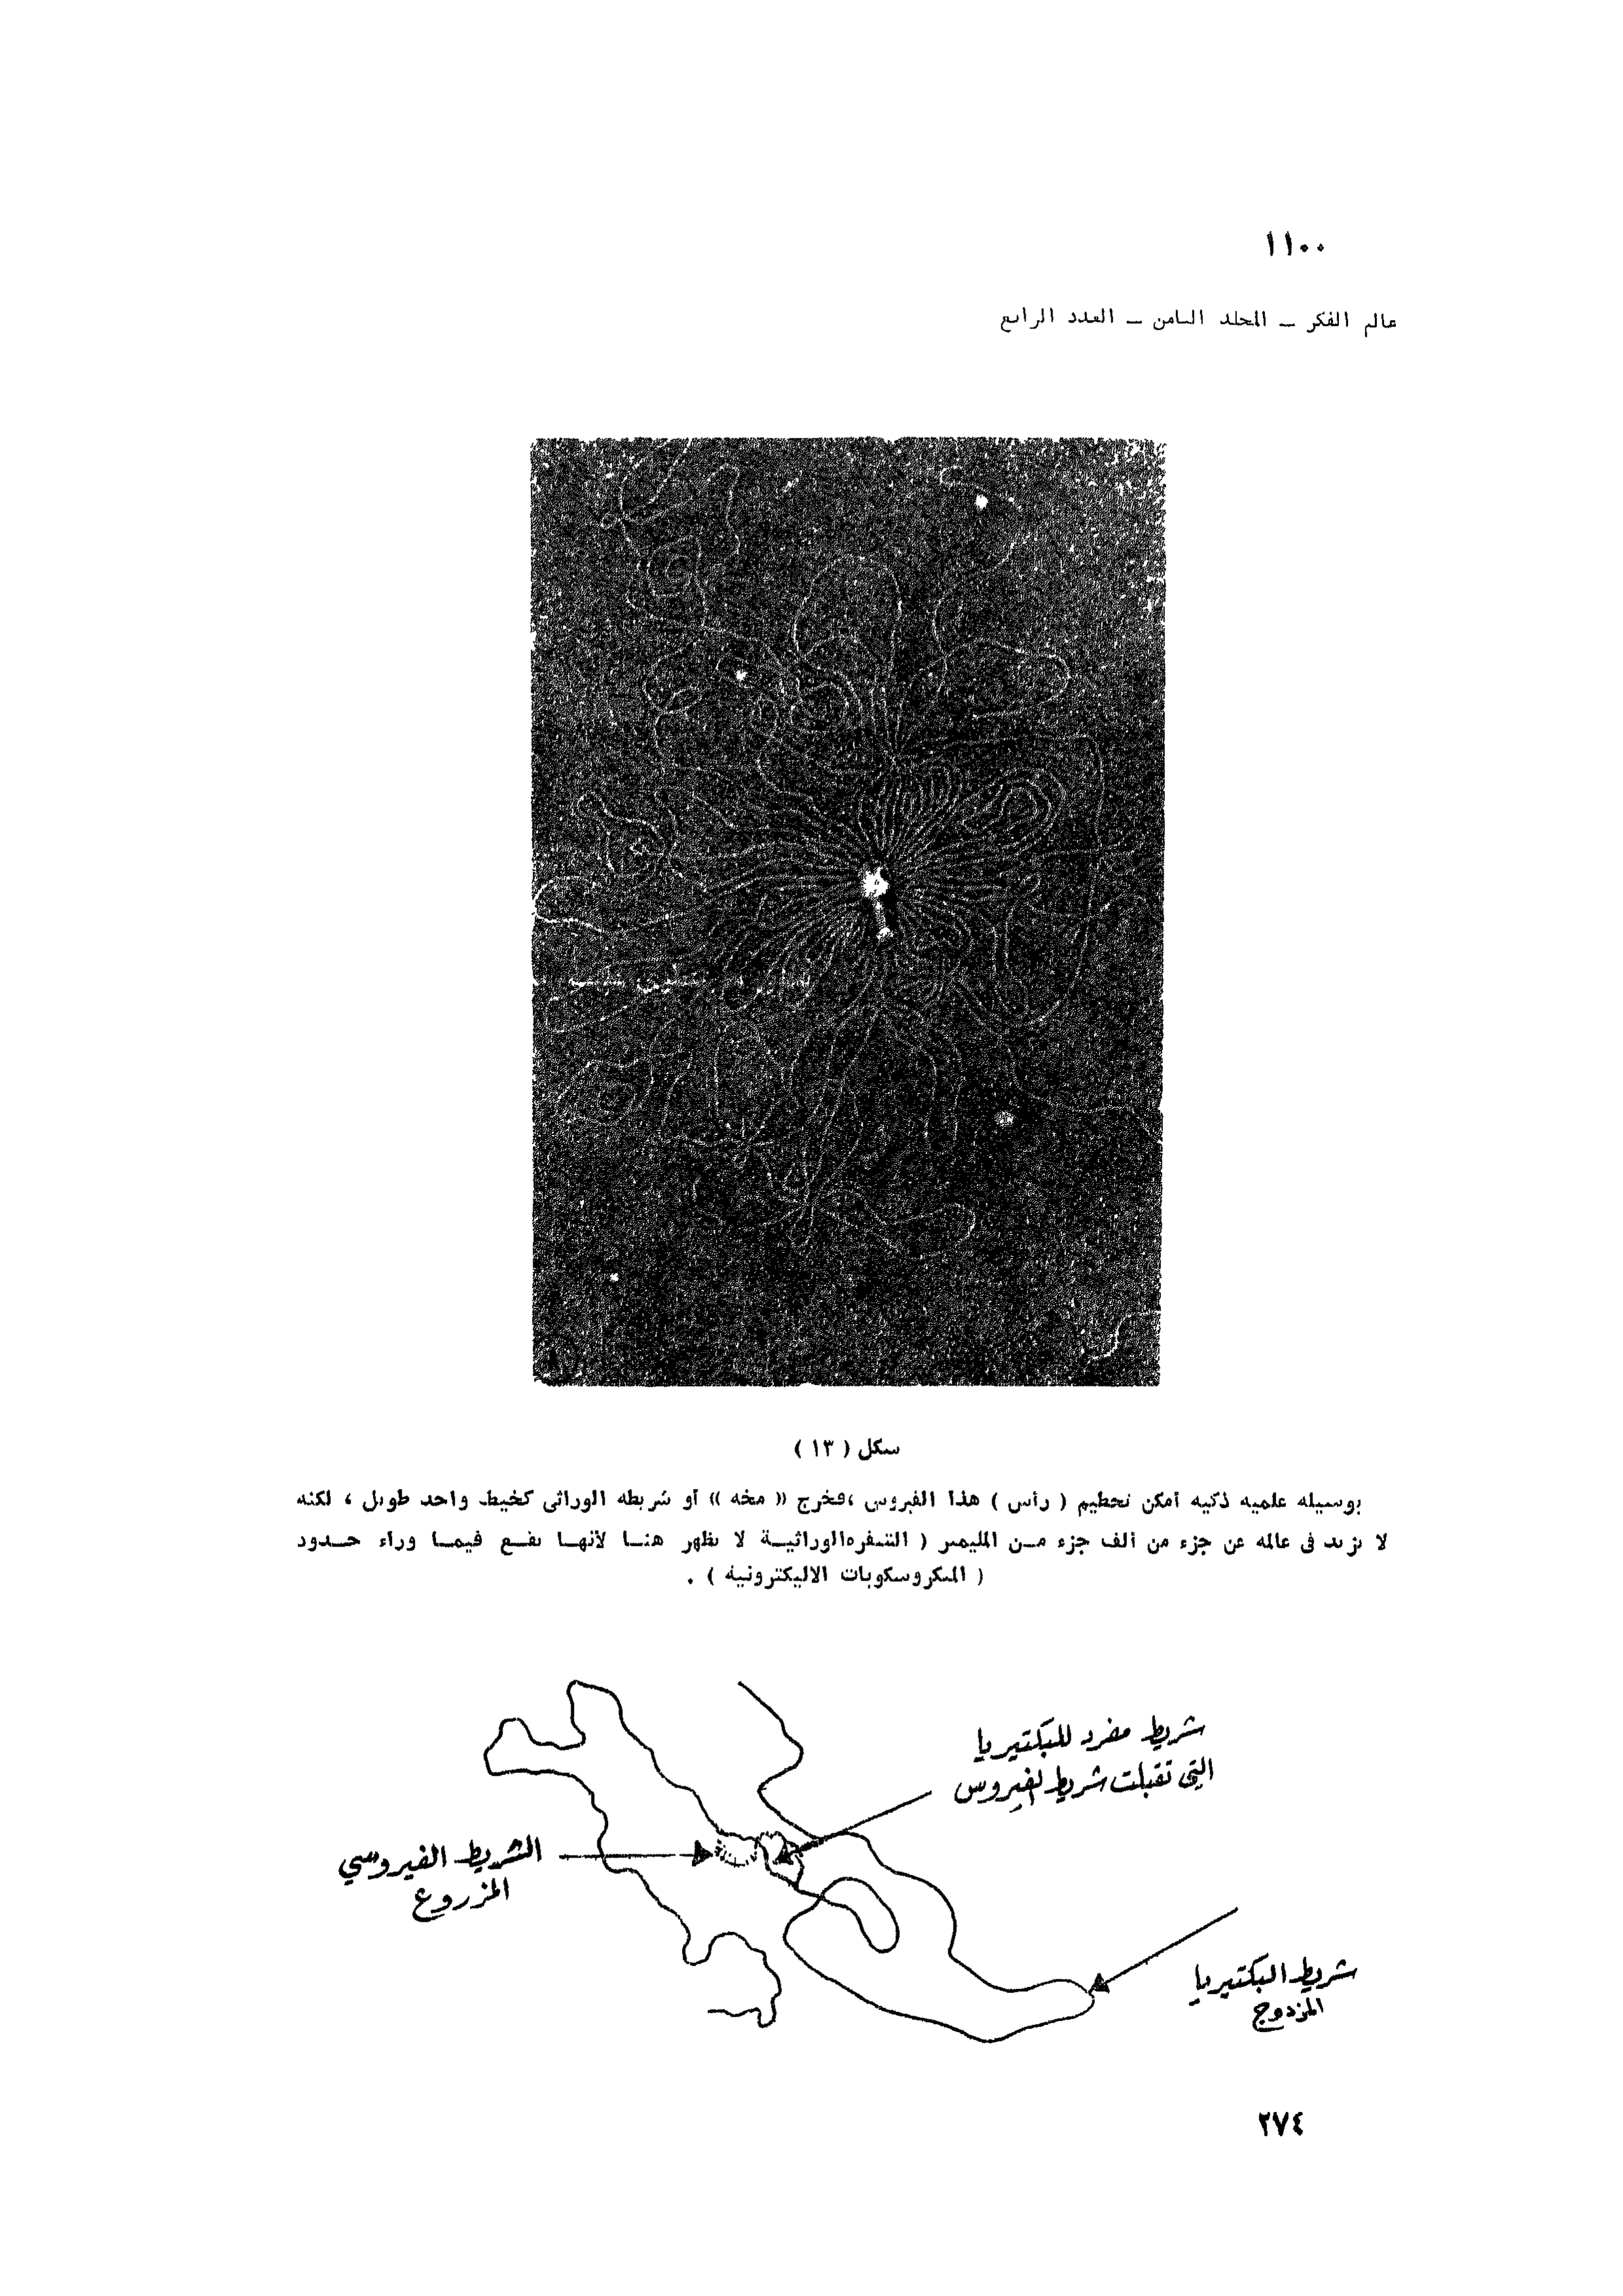 ١١٠٠
عالم الفكر ــ المجلد الثامن ــ العدد الرابع
شكل ( ١٣ )
بوسيله علميه ذكيه أمكن تحطيم ( رأس ) هذا الفيروس ،فخرج « مخه » أو شريطه الوراثى كخيط واحد طويل ، لكنه
لا يزيد فى عالمه عن جزء من ألف جزء مــن المليمتر ( الشفرهالوراثيــة لا تظهر هنــا لأنهــا تقــع فيمــا وراء حــدود
( الميكروسكوبات الاليكترونية ) .
شريط مفرد للبكتيريا
التى تقبلت شريط الفيروس
الشريط الفيروسي
المزروع
شريط البكتيريا
المزدوج
٢٧٤